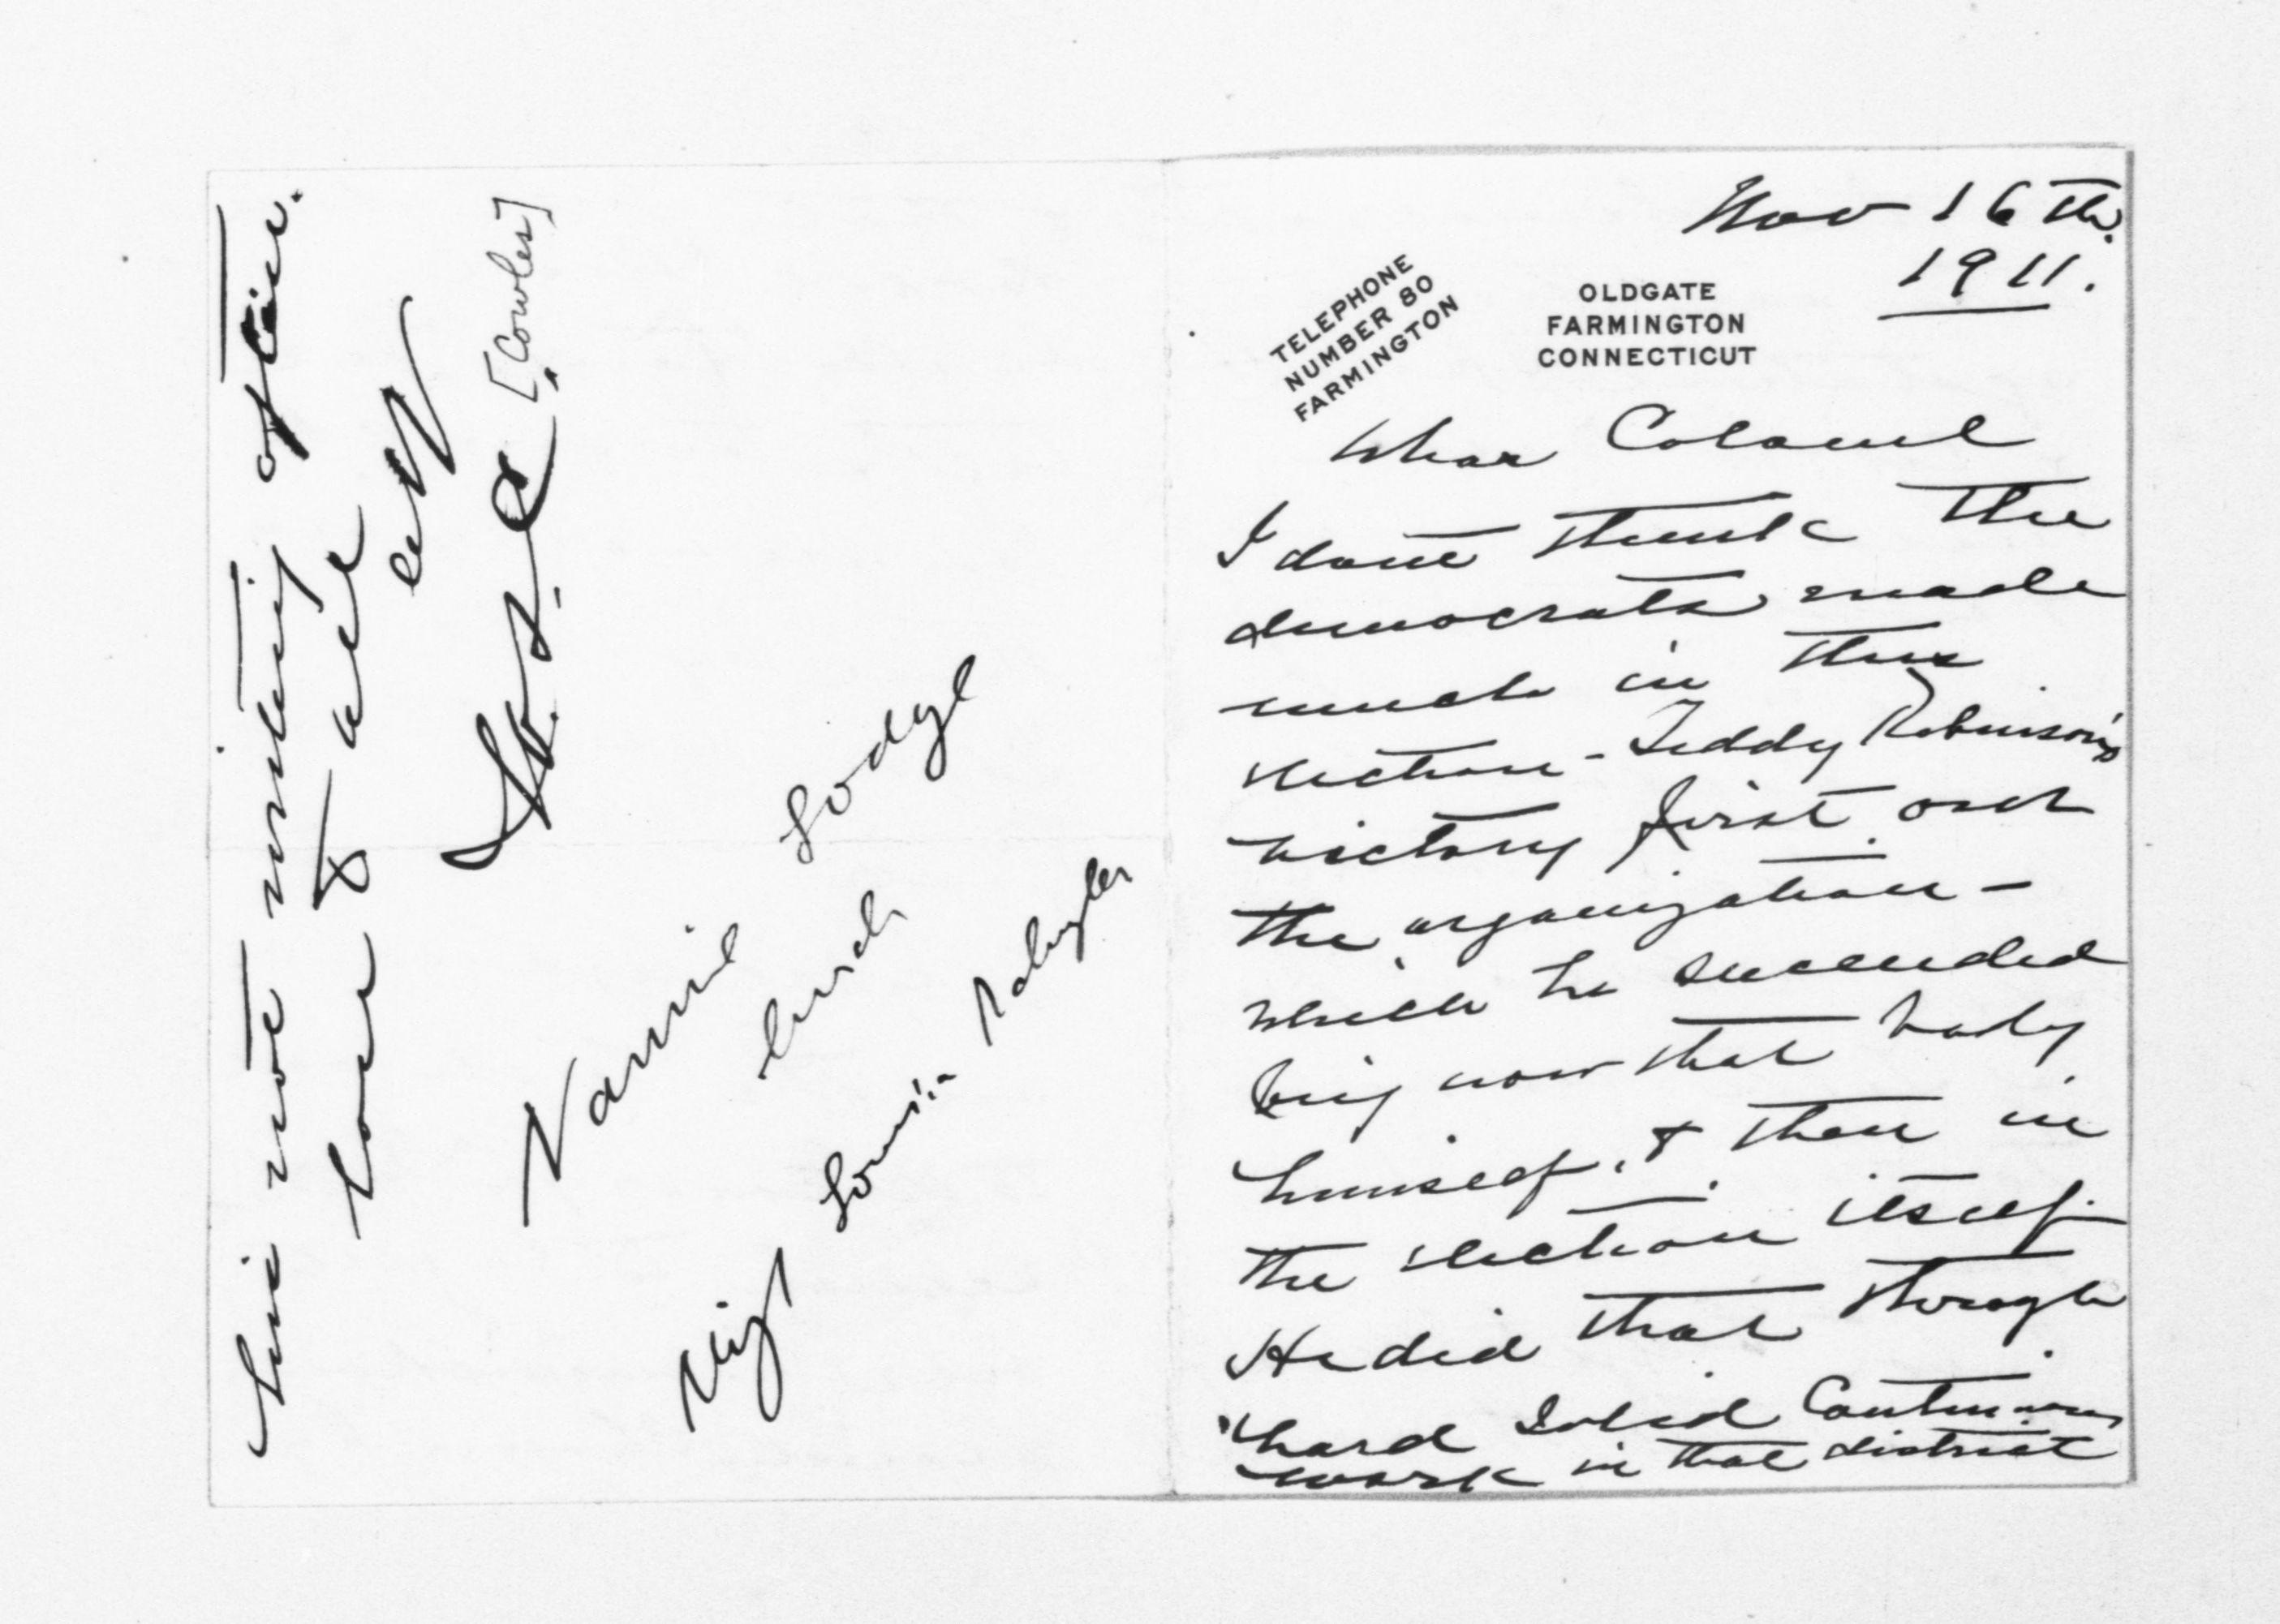 Nov 16th.
1911.
TELEPHONE
NUMBER 80
FARMINGTON
OLDGATE
FARMINGTON
CONNECTICUT
Dear Colonel
I dont think the
democrats made
much in this
election - Teddy Robinson's
victory first over
the organization -
which he succeeded
being now that body
himself, & then in
the election itself
He did that through
"hard solid Continuous
work in that district
not writing often.
love & all
W. S. C. [Cowles]
Nannie Lodge
lunch